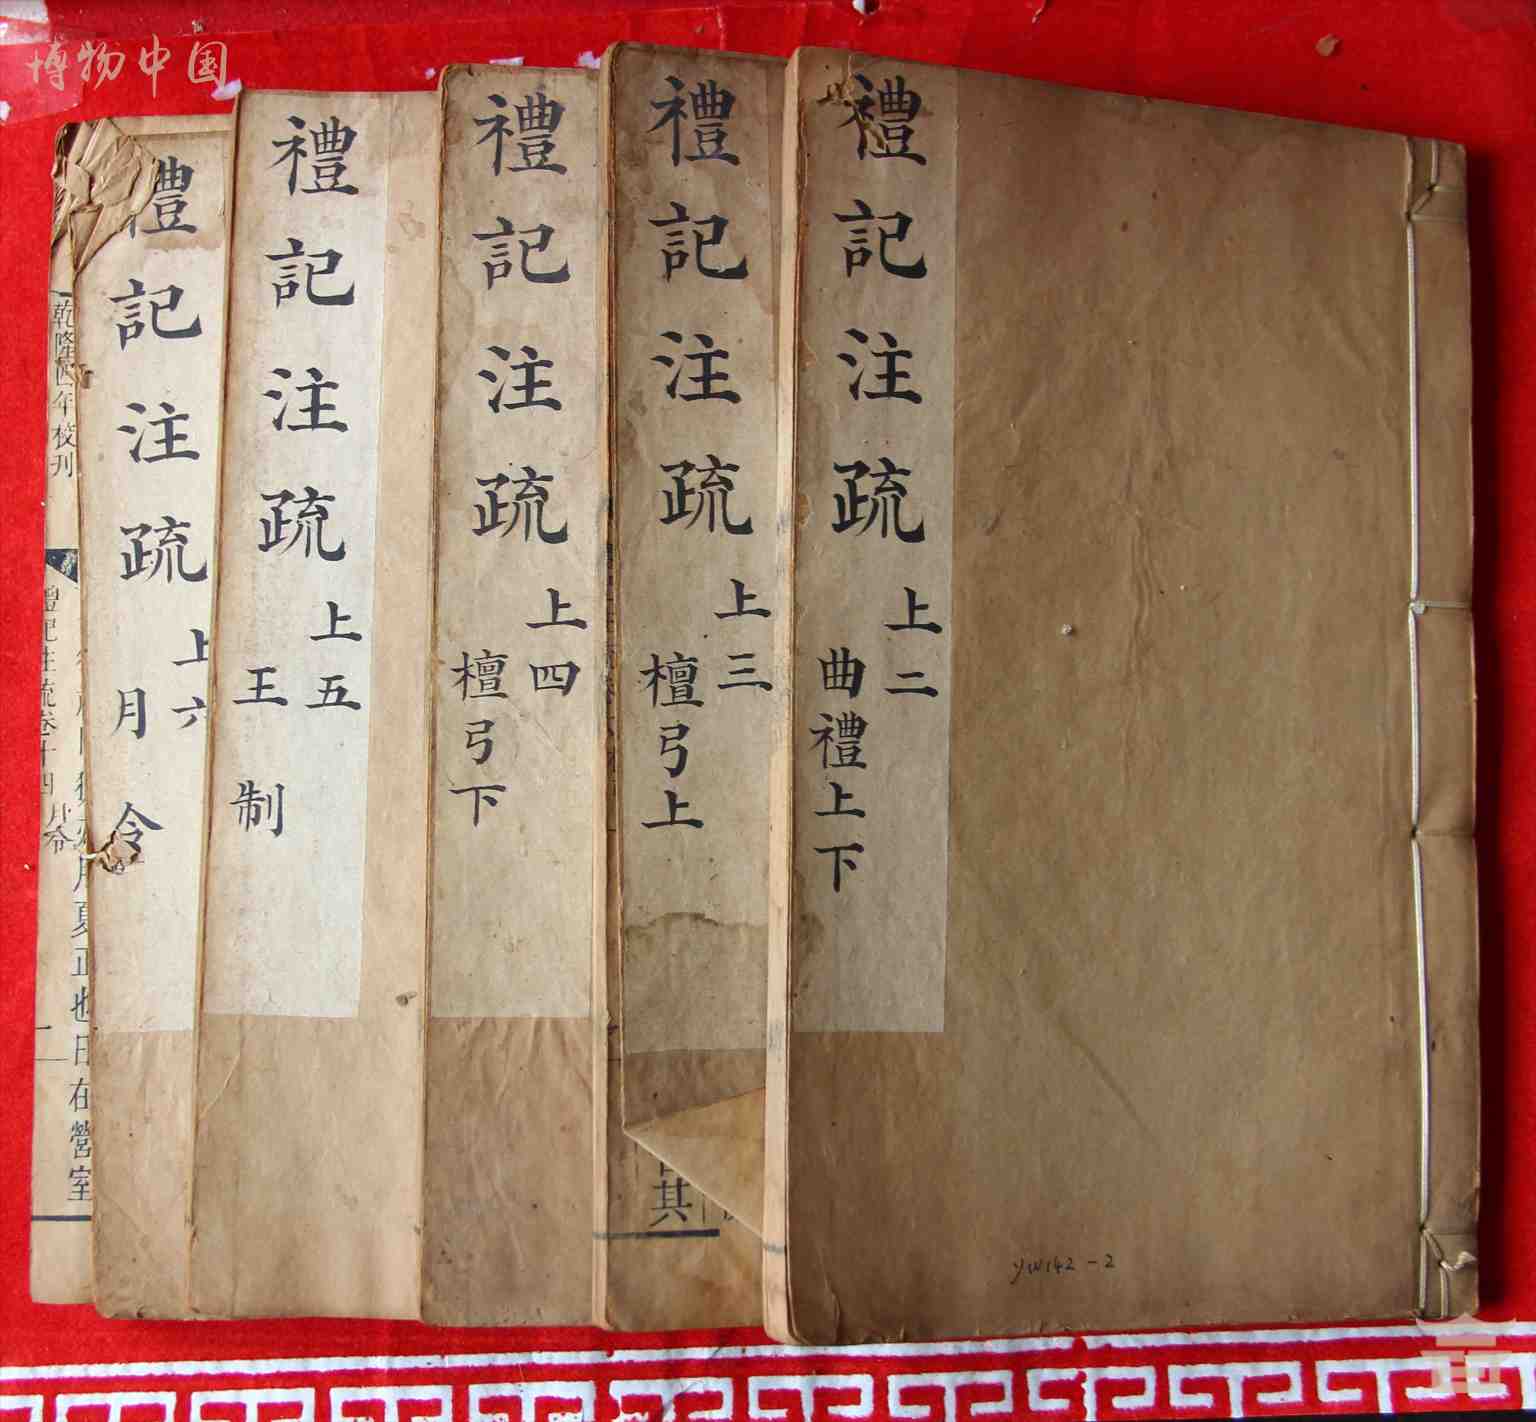 博物中国
禮記注疏
上二
曲禮上下
禮記注疏
上三
檀弓上
禮記注疏
上四
檀弓下
禮記注疏
上五
王制
禮記注疏
上六
月令
乾隆四年校刊
禮記注疏卷十四 月令
夏正也日在營室
其
YW142-2